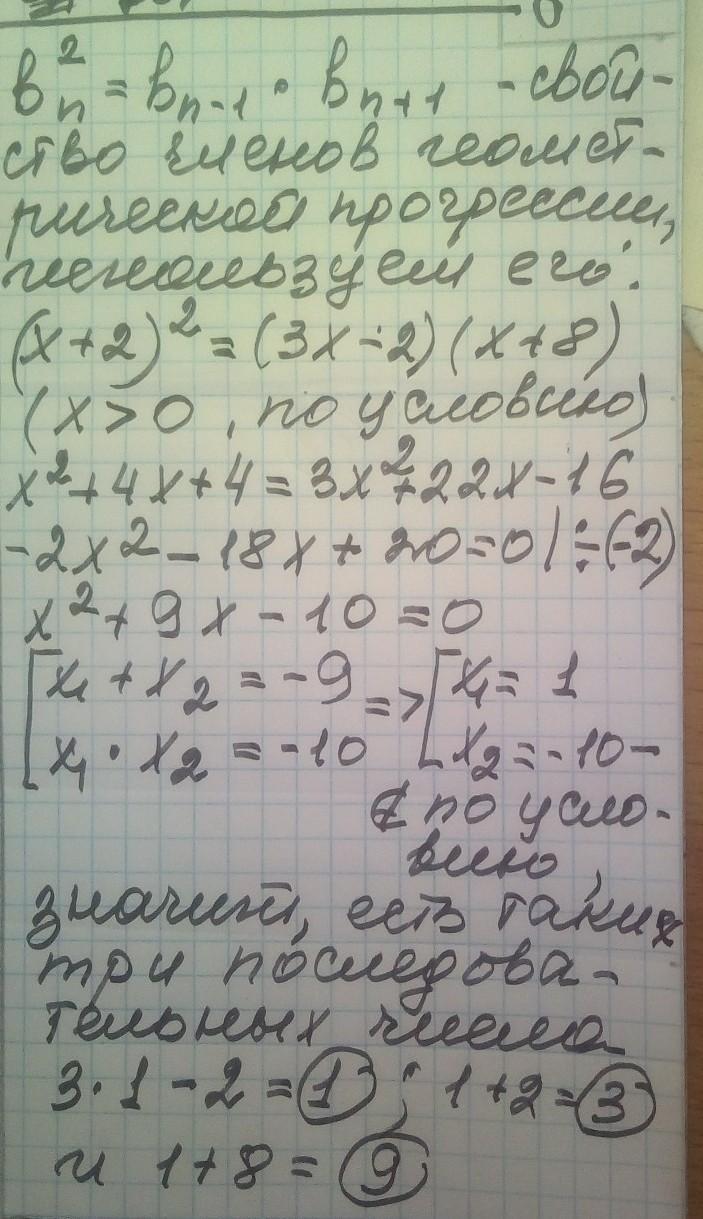 0
b²ₙ = bₙ₋₁ · bₙ₊₁ - свой-
ство членов геомет-
рической прогрессии,
используем его:
(x+2)² = (3x-2)(x+8)
(x>0, по условию)
x²+4x+4 = 3x²+22x-16
-2x²-18x+20=0 |÷(-2)
x²+9x-10=0
[x₁+x₂=-9 => [x₁=1
[x₁·x₂=-10 [x₂=-10-
∉ по усло-
вию,
значит, есть таких
три последова-
тельных числа
3·1-2=1; 1+2=3
и 1+8=9